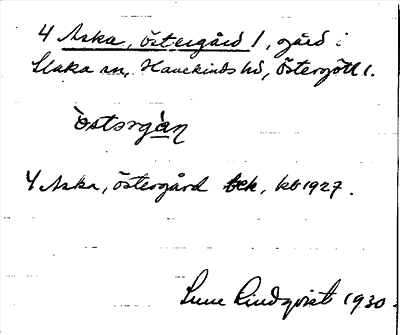 4 Aska, östergård 1, gård i
Slaka sn, Hanekinds hd, Östergötl.
östərgàn
4 Aska, östergård tek, kb 1927.
Sune Lindqvist 1930.